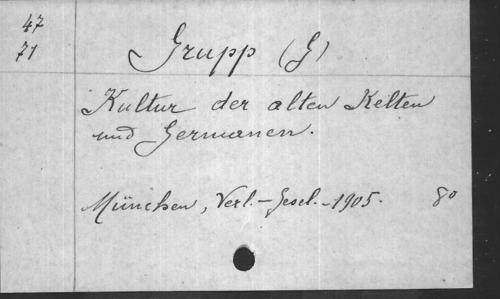 47
71
Grupp (G)
Kultur der alten Kelten
und Germanen.
München, Verl.-Gesel.-1905. 8o